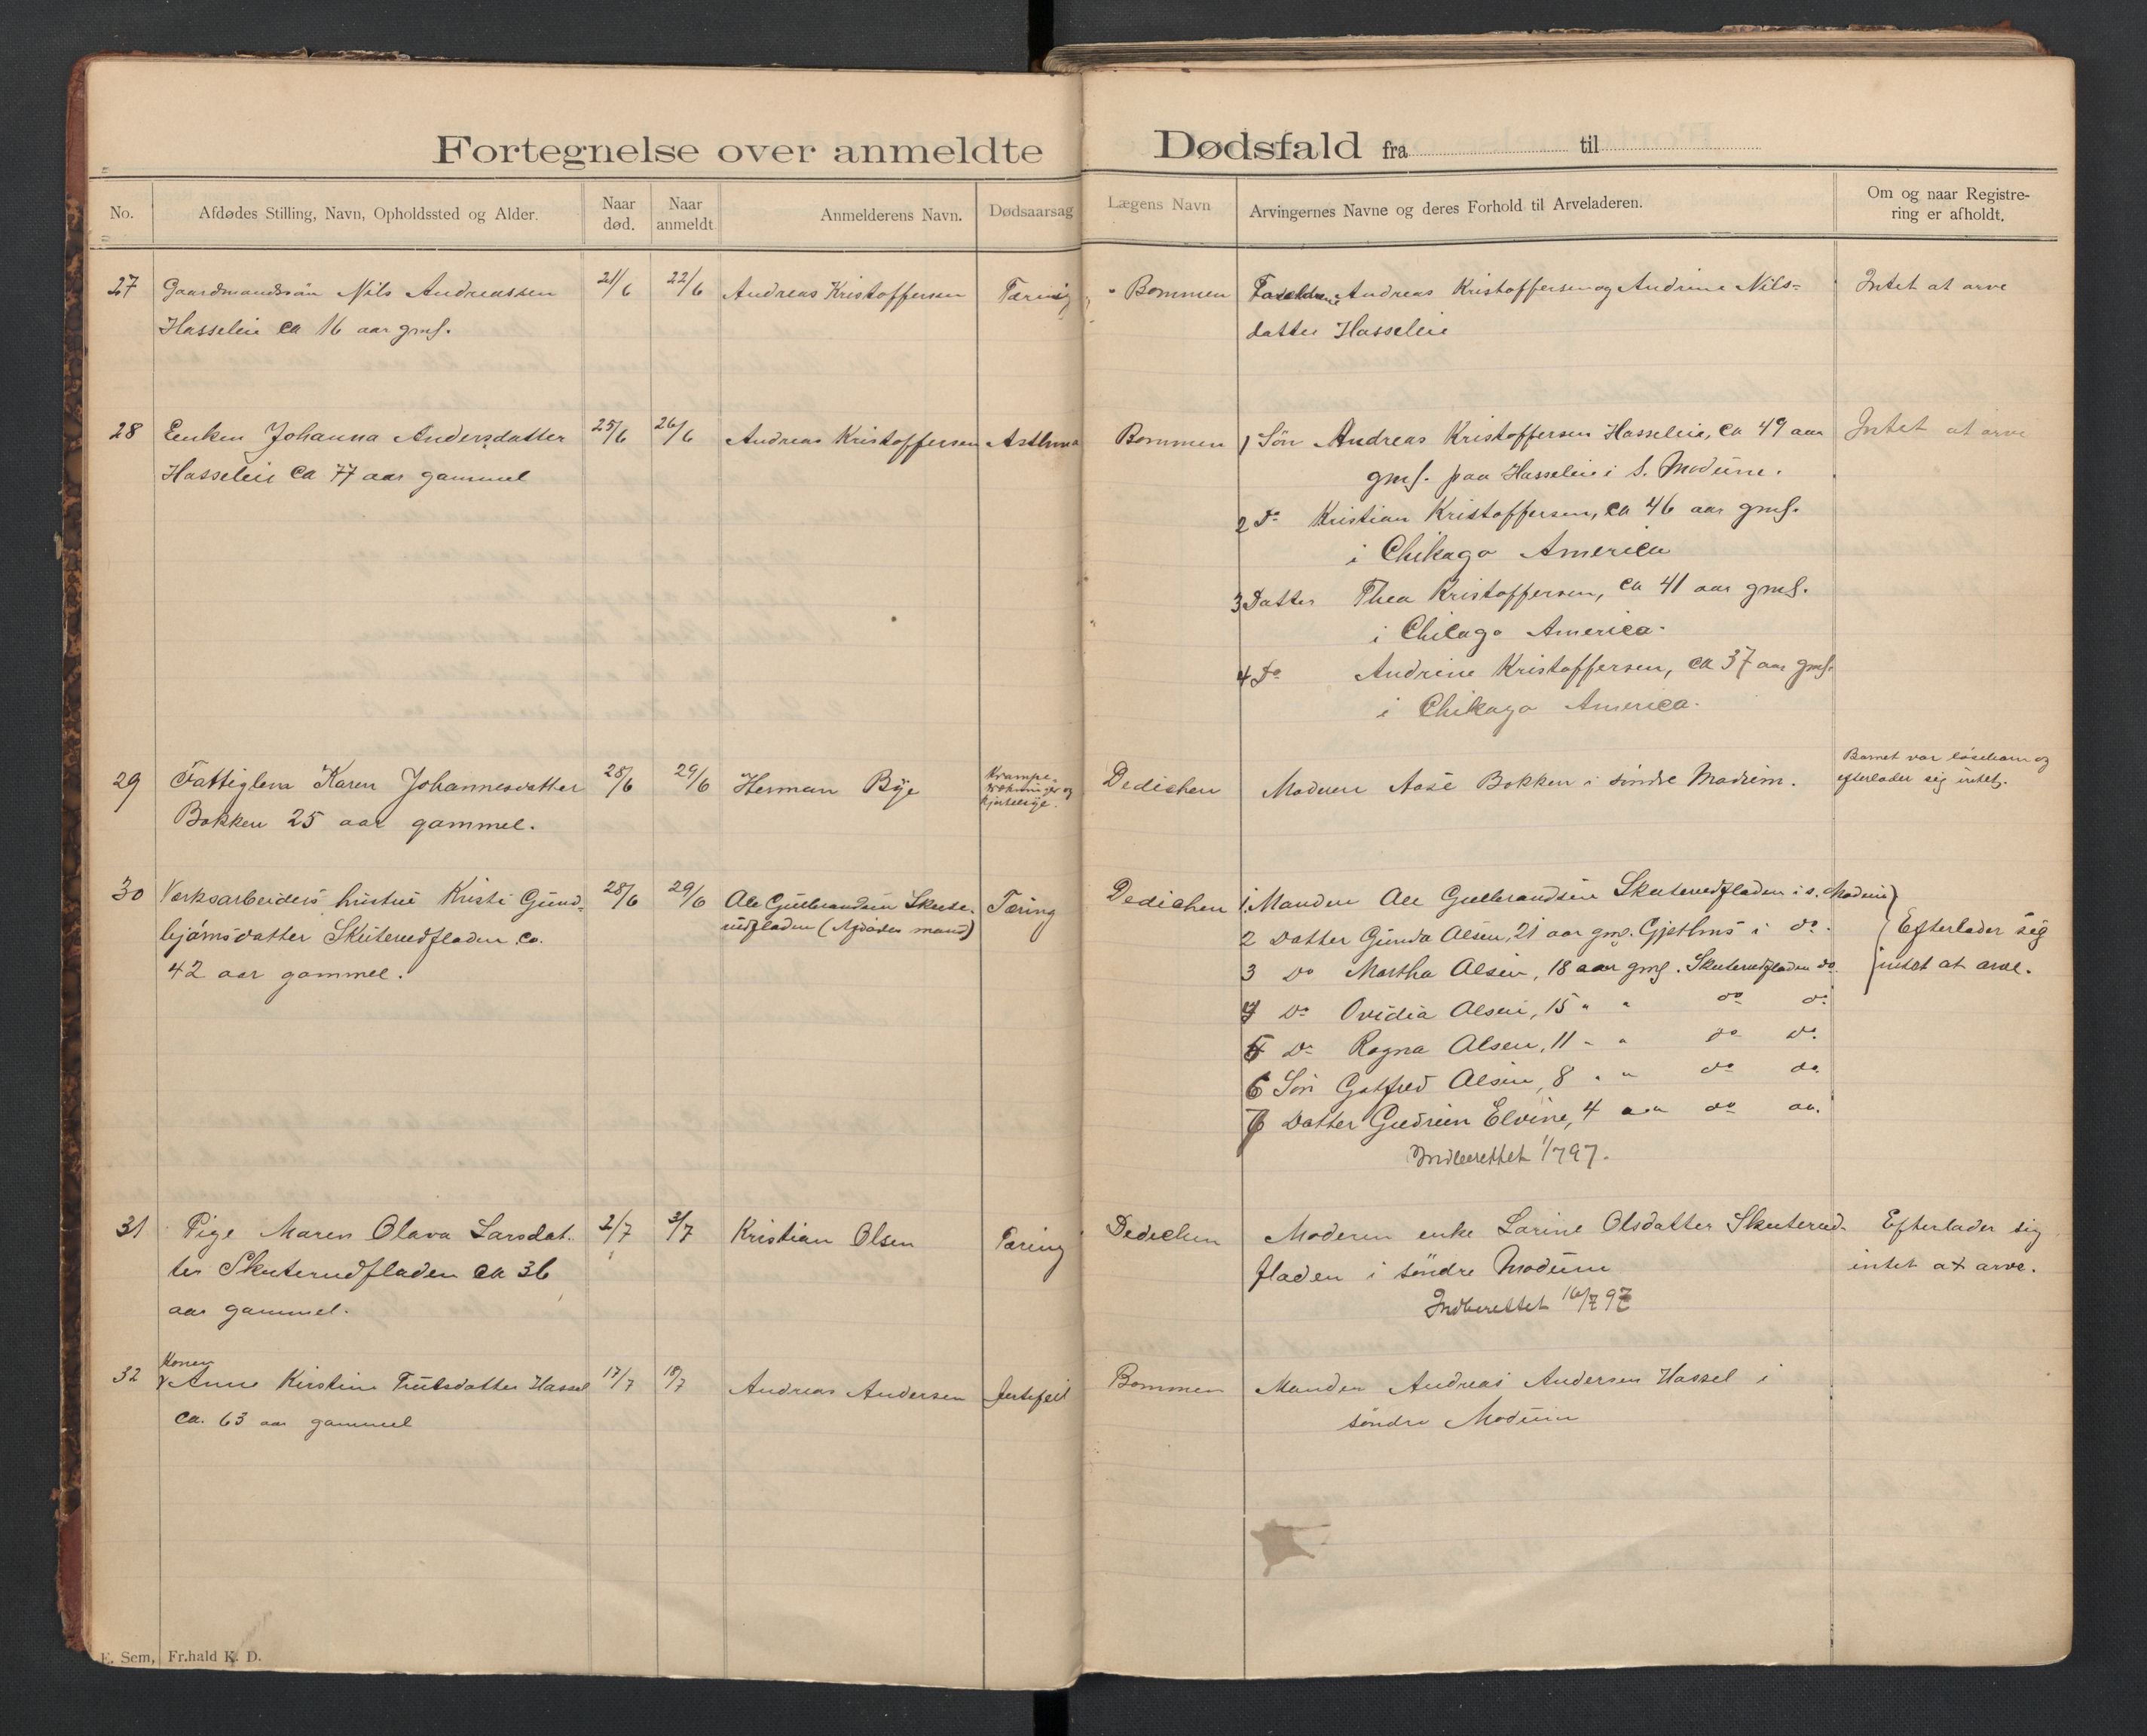 Fortegnelse over anmeldte Dødsfald fra til
No. Afdødes Stilling, Navn, Opholdssted og Alder. Naar død. Naar anmeldt Anmelderens Navn. Dødsaarsag Lægens Navn Arvingernes Navne og deres Forhold til Arveladeren. Om og naar Registrering er afholdt.
27 Gaardmandssøn Nils Andreassen 21/6 22/6 Andreas Kristoffersen Tæring Bommen Forældrene Andreas Kristoffersen og Andrine Nils- Intet at arve
Hasseleie ca 16 aar gmf. datter Hasseleie
28 Enken Johanna Andersdatter 25/6 26/6 Andreas Kristoffersen Asthma Bommen 1 Søn Andreas Kristoffersen Hasseleie, ca 49 aar Intet at arve
Hasseleie ca 77 aar gammel gmf. paa Hasseleie i S. Modum.
2 Do Kristian Kristoffersen, ca 46 aar gmf.
i Chikago America
3 Datter Thea Kristoffersen, ca 41 aar gmf.
i Chicago America.
4 Do Andrine Kristoffersen, ca 37 aar gmf.
i Chikago America.
29 Fattiglem Karen Johannesdatter 28/6 29/6 Herman Bye Krampe- Dedichen Moderen Aase Bokken i søndre Modum. Barnet var løsebarn og
Bokken 25 aar gammel. og hjertelige. efterlader sig intet.
30 Verksarbeiders hustru Kristi Gund- 28/6 29/6 Ole Gulbrandsen Skute- Tæring Dedichen 1. Manden Ole Gulbrandsen Skuterudfladen i s. Modum
bjørnsdatter Skuterudfladen ca. rudfladen (Afdødes mand) 2 Datter Gunda Olsen, 21 aar gml. Gjethus i do. Efterlader sig
42 aar gammel. 3 Do Martha Olsen, 18 aar gmf. Skuterudfladen do intet at arve.
4 Do Ovidia Olsen, 15 " " do do
5 Do Ragna Olsen, 11 " " do do.
6 Søn Gotfred Olsen, 8 " " do do.
7 Datter Gudrun Elvine, 4 " " do do.
Indberettet 1/7 97.
31 Pige Maren Olava Larsdat- 2/7 3/7 Kristian Olsen Tæring Dedichen Moderen enke Larine Olsdatter Skuterud- Efterlader sig
ter Skuterudfladen ca 36 fladen i søndre Modum intet at arve.
aar gammel. Indberettet 16/7 97
Konen
32 Anne Kirstine Trulsdatter Hassel 17/7 18/7 Andreas Andersen hertefeil Bommen Manden Andreas Andersen Hassel i
ca. 63 aar gammel søndre Modum
E. Sem, Fr.hald K. D.